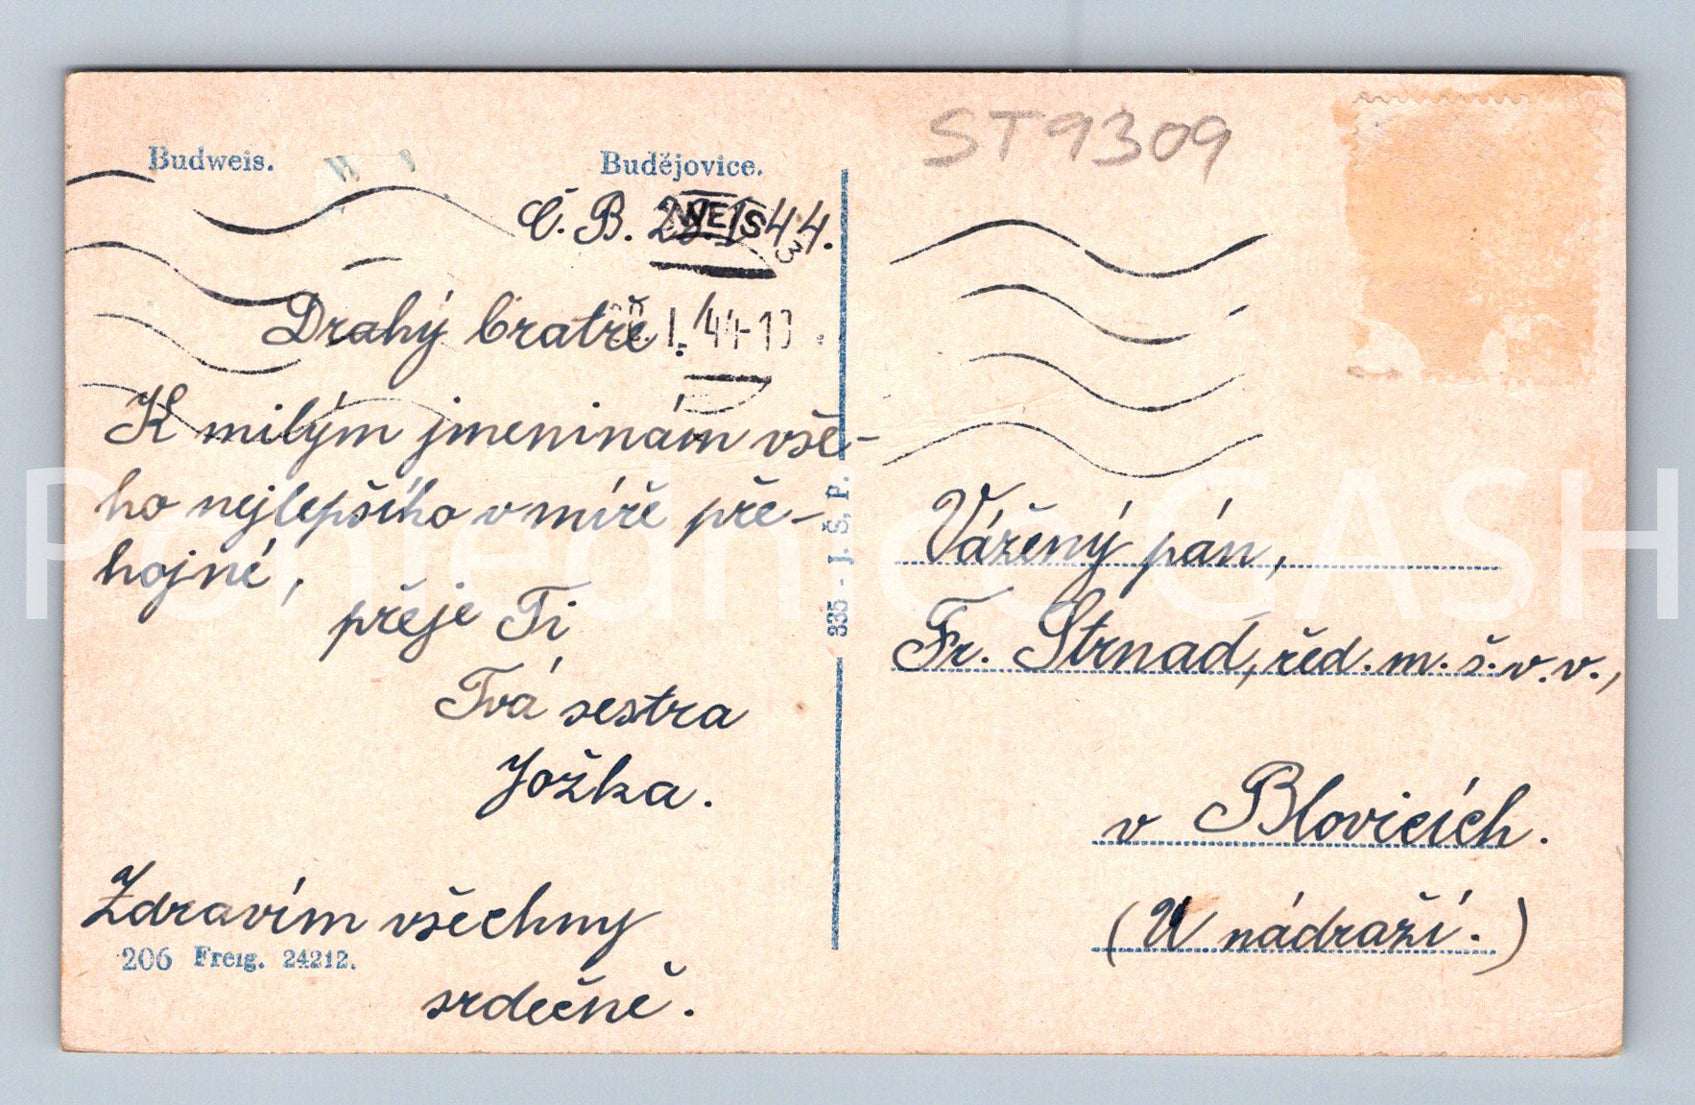 ST9309
Budweis.
Budějovice.
Č. B. 28.1.44.
WEIS
3
I. 44-13
Drahý bratře!
K milým jmeninám vše-
ho nejlepšího v míře pře-
hojné,
přeje Ti
Tvá sestra
Jožka.
Zdravím všechny
srdečně.
206 Freig. 24212.
335 - J. Š. P.
Vážený pán,
Fr. Strnad, řed. m. š. v. v.,
v Blovicích.
(U nádraží.)